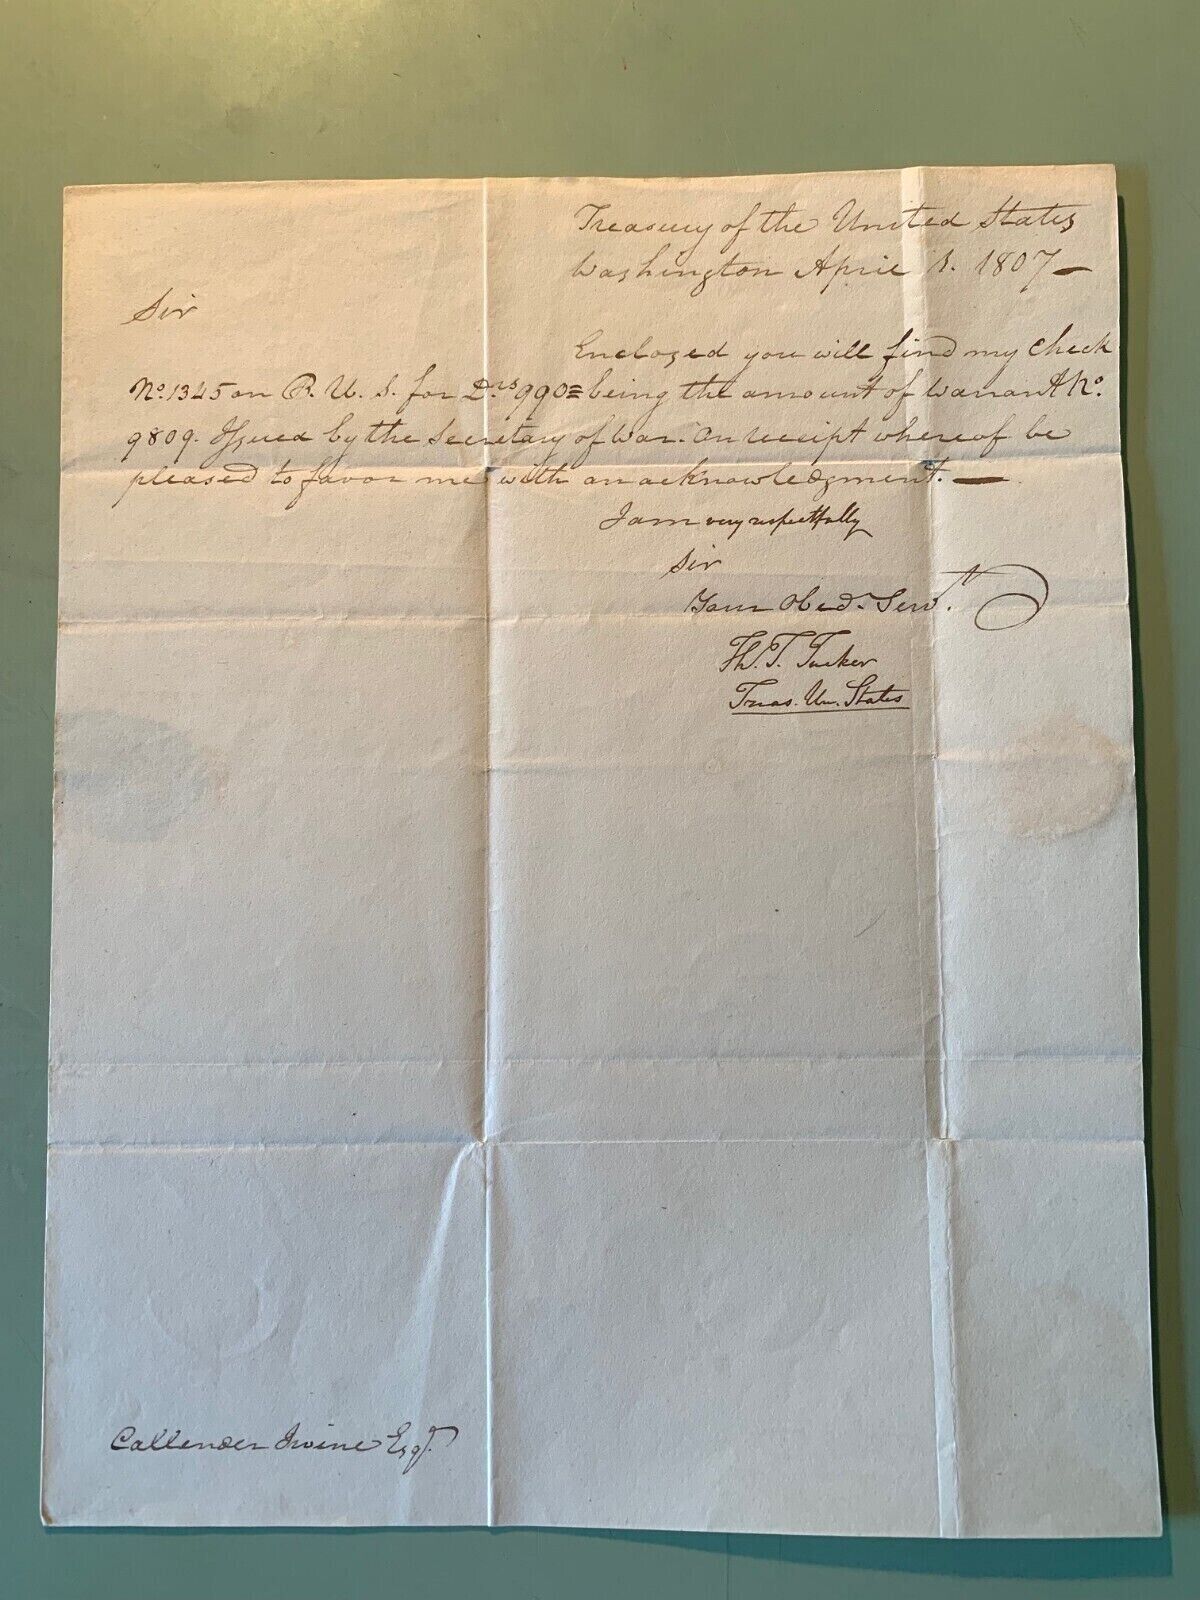 Treasury of the United States
Washington April 8. 1807 —
Sir
Enclosed you will find my Check
No. 1345 on B. U. S. for Drs 990 = being the amount of Warrant No.
9809. Issued by the Secretary of War. On receipt whereof be
pleased to favor me with an acknowledgment. —
I am very respectfully
Sir
Your Obed. Servt.
Th. T. Tucker
Treas. Un. States
Callender Irvine Esqr.